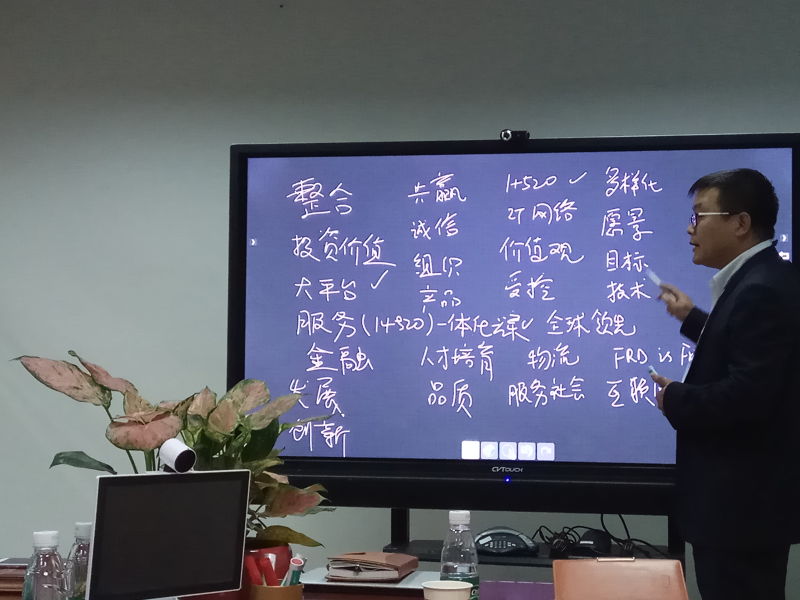 整合 共赢 1+520 ✓ 多样化
诚信 IT网络 愿景
投资价值 组织 价值观 目标
大平台 ✓ 产品 受控 技术
服务(1+520)一体化 全球领先
金融 人才培育 物流 FRD is
发展 品质 服务社会 互联
创新
CVTOUCH